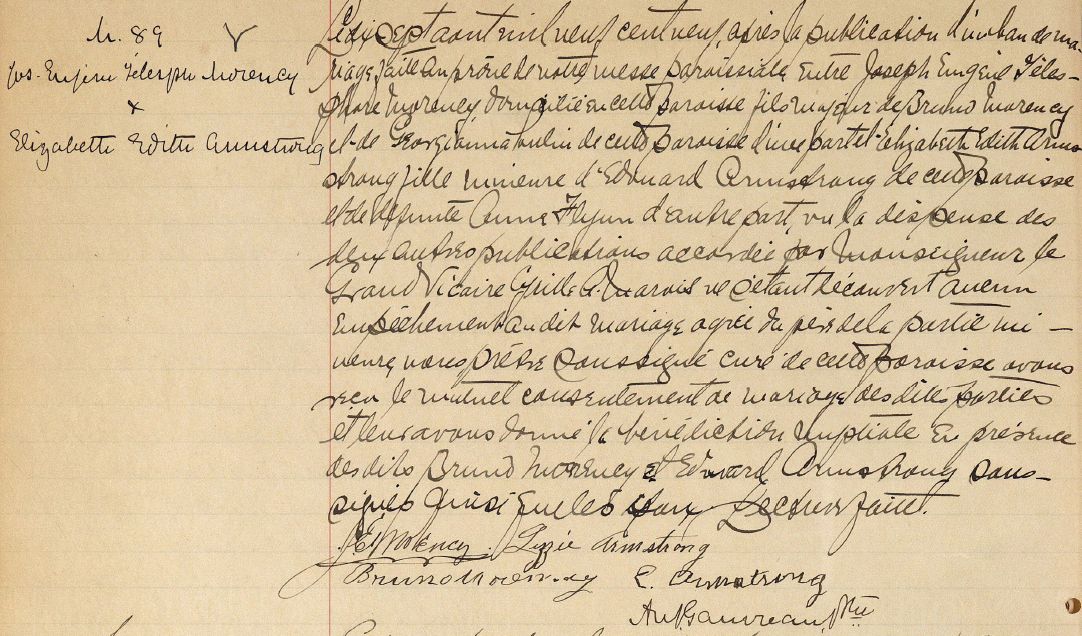 M. 89
Jos. Eugène Télesph. Morency
x
Elizabeth Edith Armstrong
Le dix sept aout mil neuf cent neuf, après la publication d'un ban de ma-
riage faite au prône de notre messe paroissiale entre Joseph Eugène Téles-
phore Morency, domicilié en cette paroisse fils majeur de Bruno Morency
et de Georgianna Poulin de cette paroisse d'une part et Elizabeth Edith Arm-
strong fille mineure d'Edouard Armstrong de cette paroisse
et de défunte Anne Flynn d'autre part, vu la dispense des
deux autres publications accordée par Monseigneur le
Grand Vicaire C. A. Marois ne s'étant découvert aucun
empêchement au dit mariage agréé du père de la partie mi-
neure, nous prêtre soussigné curé de cette paroisse avons
reçu le mutuel consentement de mariage des dites parties
et leur avons donné la bénédiction nuptiale en présence
des dits Bruno Morency et Edouard Armstrong sous-
signés ainsi que les époux. Lecture faite.
J. E. T. Morency Lizzie Armstrong
Bruno Morency E. Armstrong
Ant. Gauvreau, Ptre